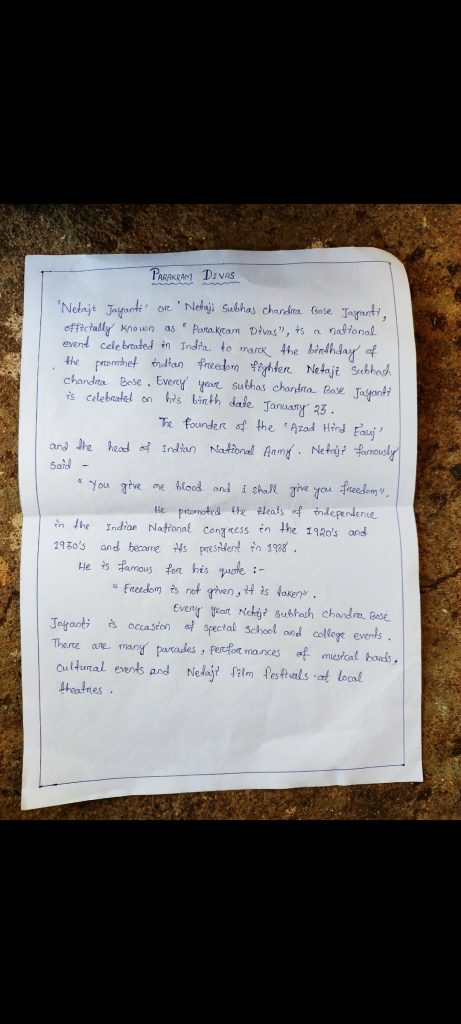 PARAKRAM DIVAS
'Netaji Jayanti' or 'Netaji Subhas chandra Bose Jayanti,
officially known as "Parakram Divas", is a national
event celebrated in India to mark the birthday of
the prominet indian freedom fighter Netaji Subhash
chandra Bose. Every year subhas chandra Bose Jayanti
is celebrated on his birth date January 23.
The founder of the 'Azad Hind Fauj'
and the head of Indian National Army. Netaji famously
said -
"You give me blood and I shall give you freedom".
He promoted the ideals of independence
in the Indian National Congress in the 1920's and
1930's and became its president in 1938.
He is famous for his quote :-
"Freedom is not given, it is taken".
Every year Netaji subhash Chandra Bose
Jayanti is occasion of special school and college events.
There are many parades, performances of musical bands,
cultural events and Netaji film festivals at local
theatres.